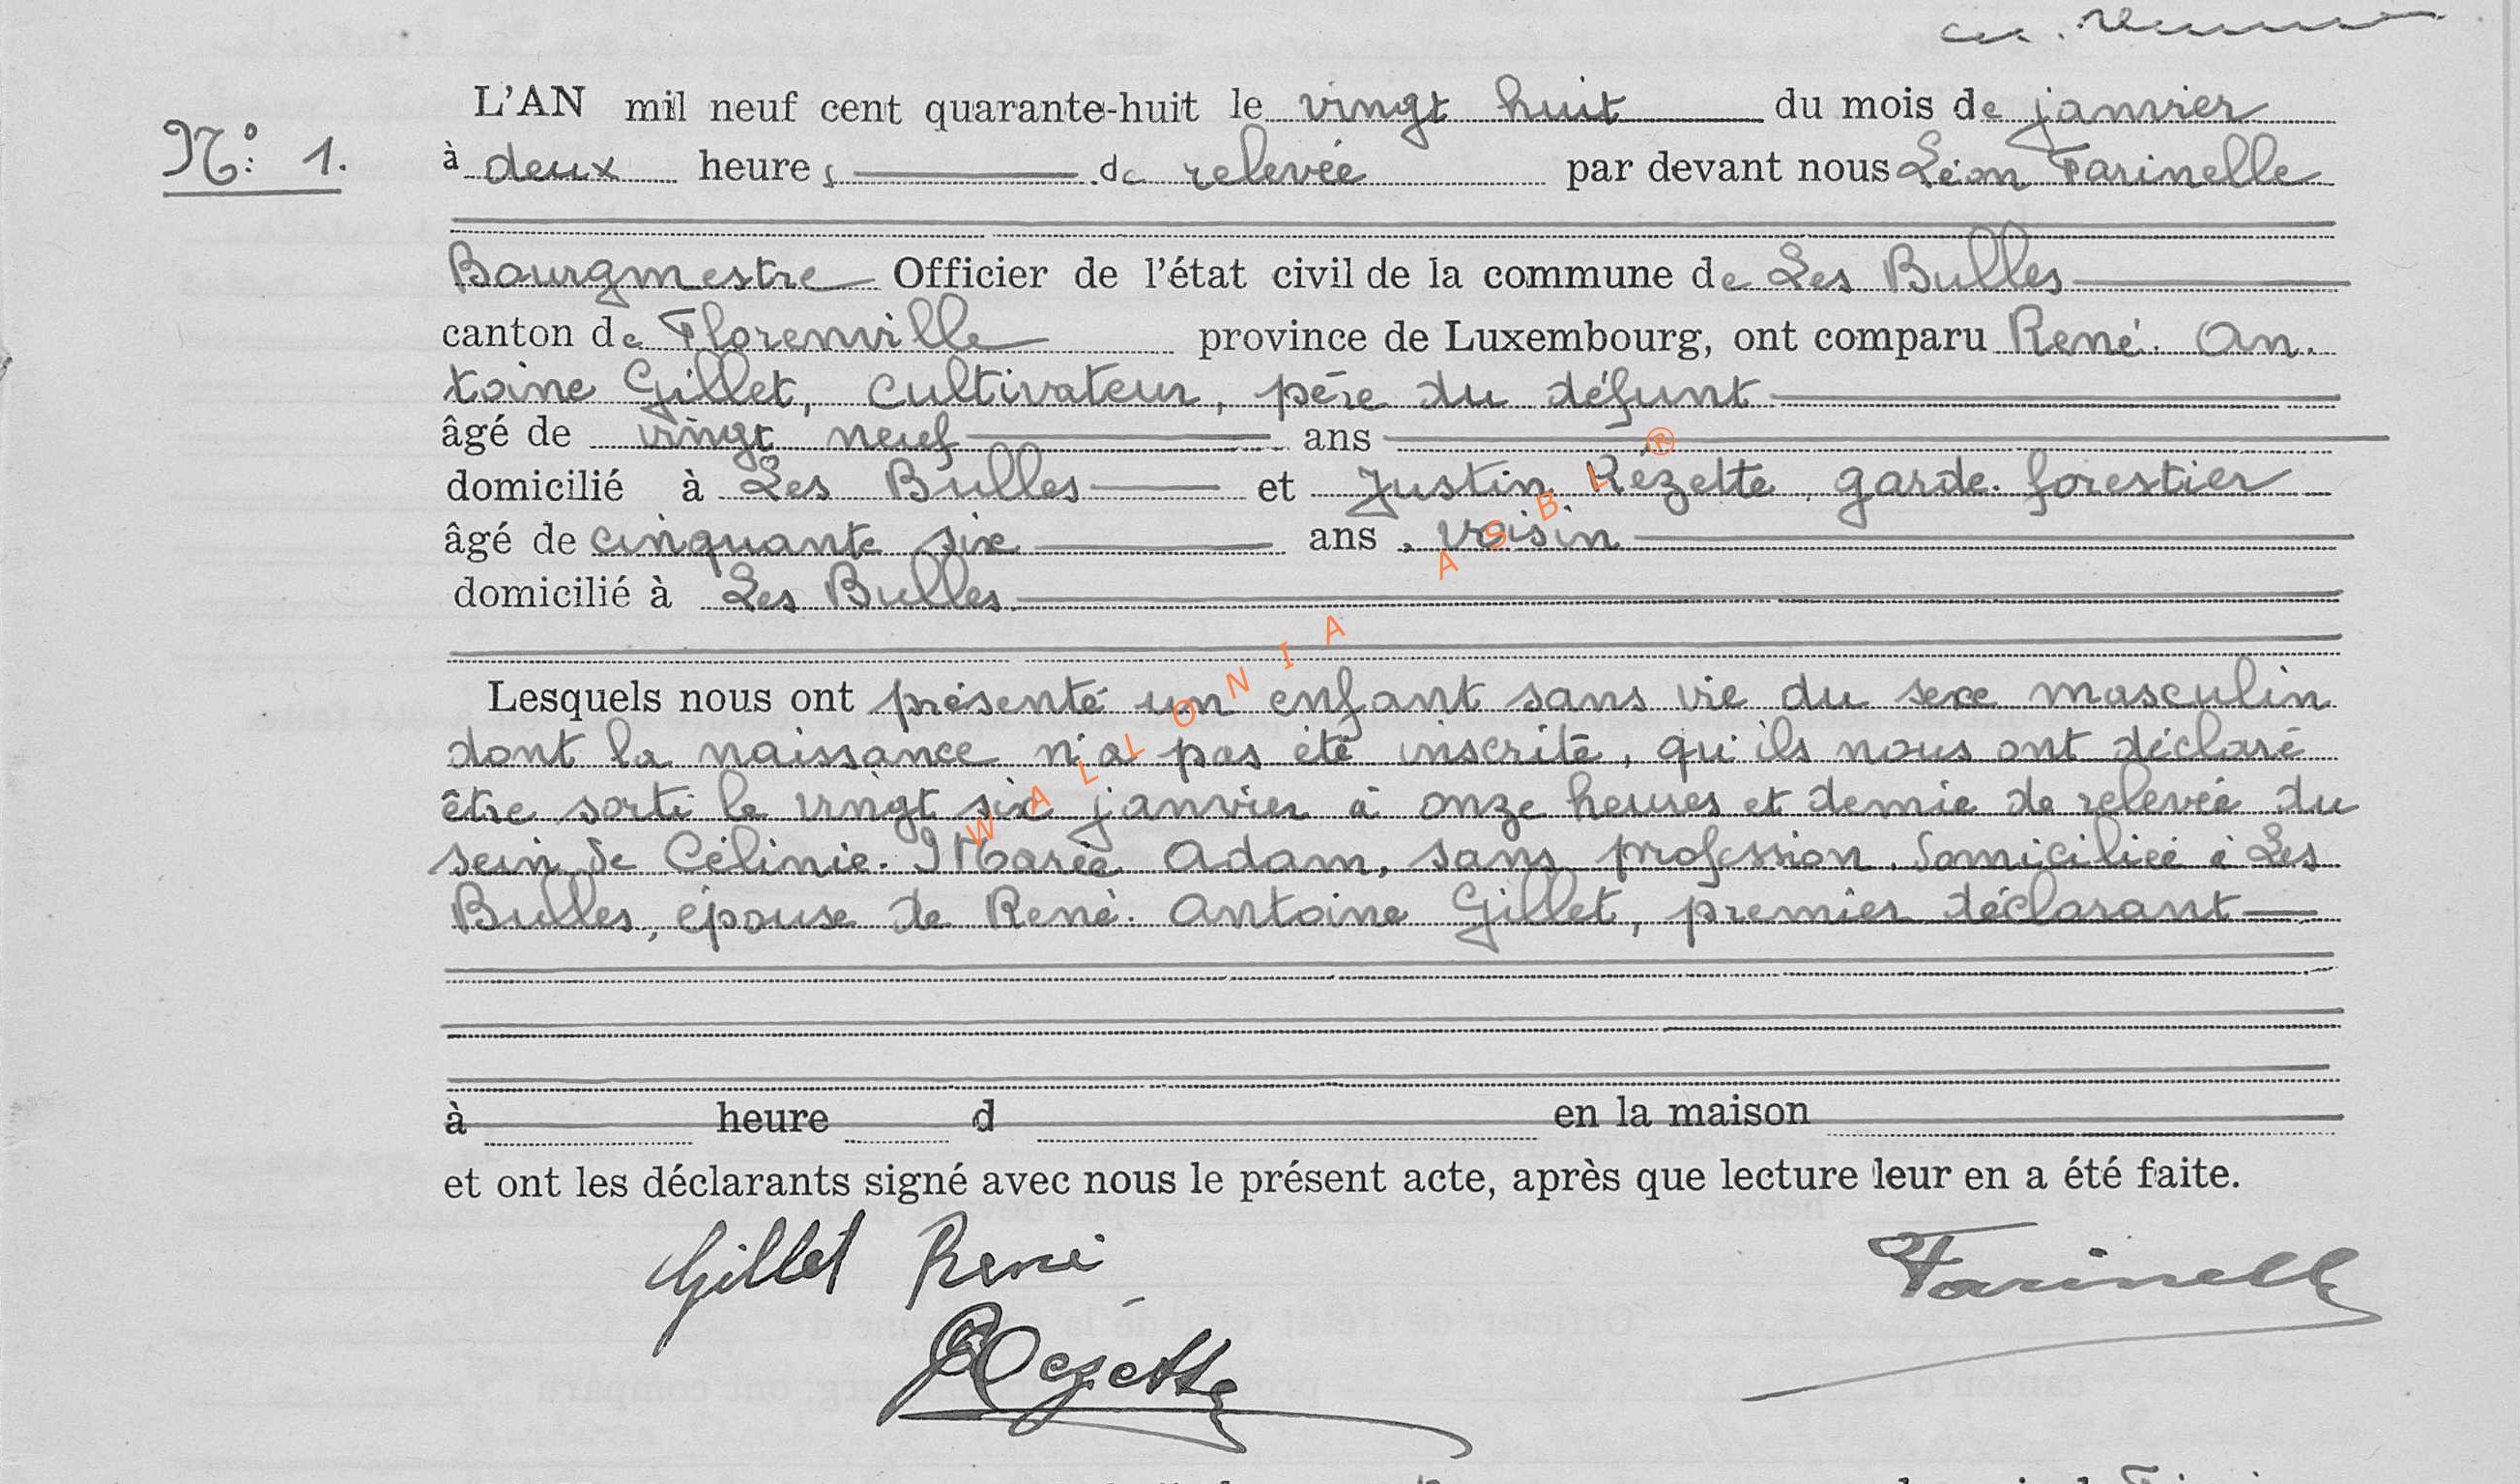 L'AN mil neuf cent quarante-huit le vingt huit du mois de janvier
N° 1. à deux heures de relevée par devant nous Léon Farinelle
Bourgmestre Officier de l'état civil de la commune de Les Bulles
canton de Florenville province de Luxembourg, ont comparu René. An.
toine Gillet, cultivateur, père du défunt
âgé de vingt neuf ans
domicilié à Les Bulles et Justin Rézette, garde. forestier
âgé de cinquante six ans, voisin
domicilié à Les Bulles
Lesquels nous ont présenté un enfant sans vie du sexe masculin
dont la naissance n'a pas été inscrite, qu'ils nous ont déclaré
être sorti le vingt six janvier à onze heures et demie de relevée du
sein de Célinie. Marie Adam, sans profession, domiciliée à Les
Bulles, épouse de René. Antoine Gillet, premier déclarant
à heure d en la maison
et ont les déclarants signé avec nous le présent acte, après que lecture leur en a été faite.
Gillet René Farinelle
Rezette
WALLONIA ASBL ®